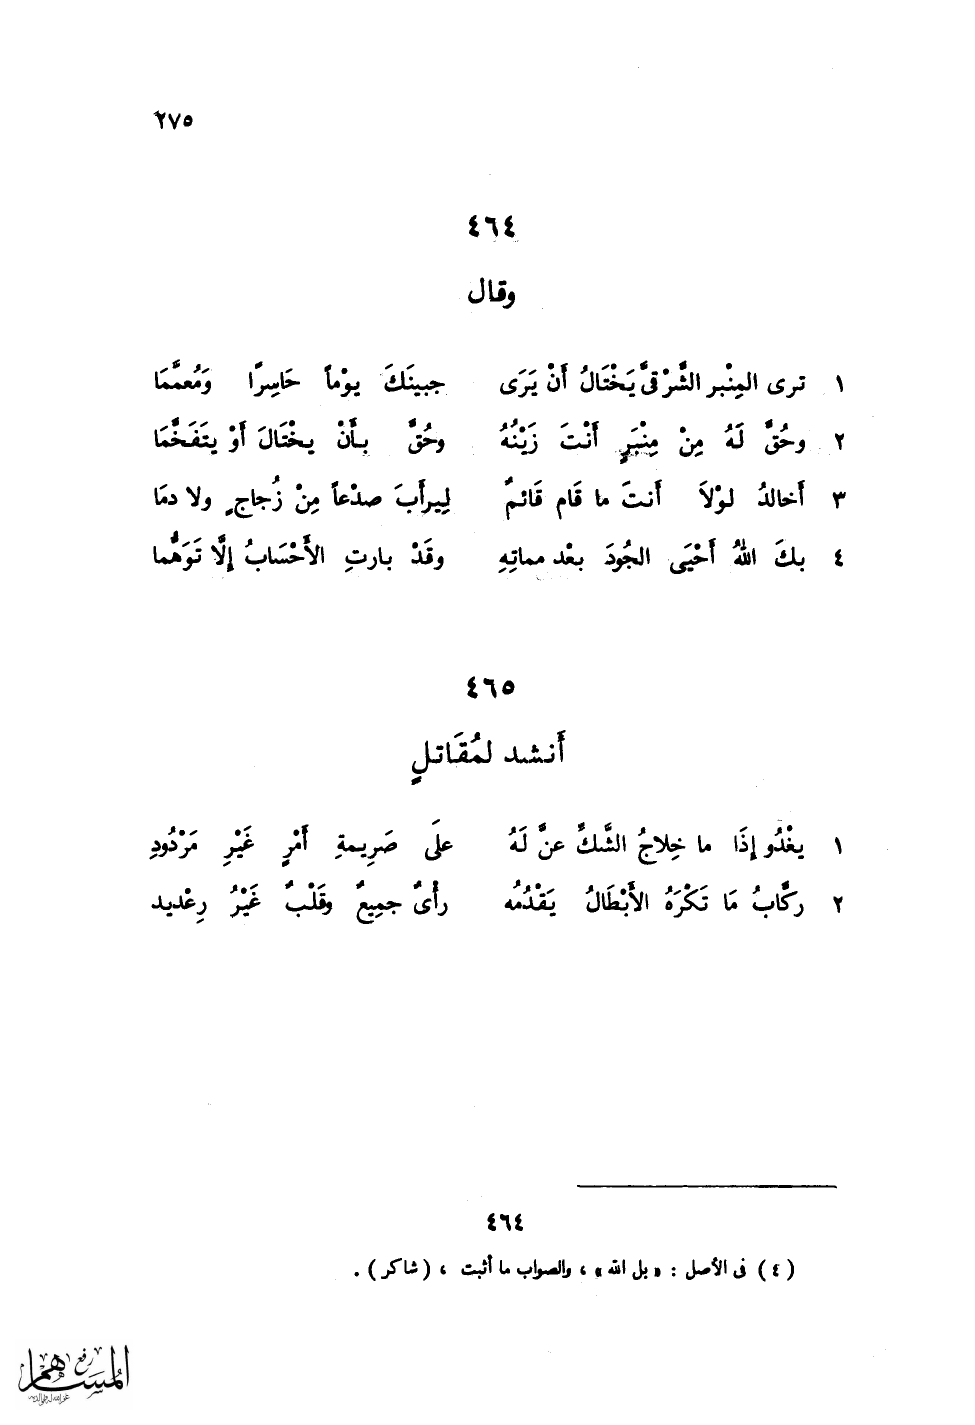 ٢٧٥
٤٦٤
وقال
١ ترى المِنْبر الشَّرْقىَّ يَخْتَالُ أَنْ يَرَى جبينَكَ يوْماً حَاسِرًا وَمُعمَّمَا
٢ وحُقَّ لَهُ مِنْ مِنْبَرٍ أَنْتَ زَيْنُهُ وحُقَّ بأَنْ يخْتَالَ أَوْ يتَفَخَّمَا
٣ أَخالدُ لوْلاَ أَنتَ ما قَام قَائمٌ لِيرأَبَ صدْعاً مِنْ زُجاجٍ ولا دمَا
٤ بكَ اللهُ أَحْيَى الجُودَ بعْد مماتِهِ وقَدْ بارتِ الأَحْسَابُ إِلَّا تَوَهُّما
٤٦٥
أَنشد لمُقَاتلٍ
١ يغْدُو إِذَا ما خِلاجُ الشَّكِّ عنَّ لَهُ علَى صَرِيمةِ أَمْرٍ غَيْرِ مَرْدُودِ
٢ ركَّابُ مَا تَكْرَهُ الأَبْطَالُ يَقْدُمُه رأْىٌ جمِيعٌ وقَلْبٌ غَيْرُ رِعْديد
٤٦٤
(٤) فى الأصل : «بل الله» ، والصواب ما أثبت ، (شاكر) .